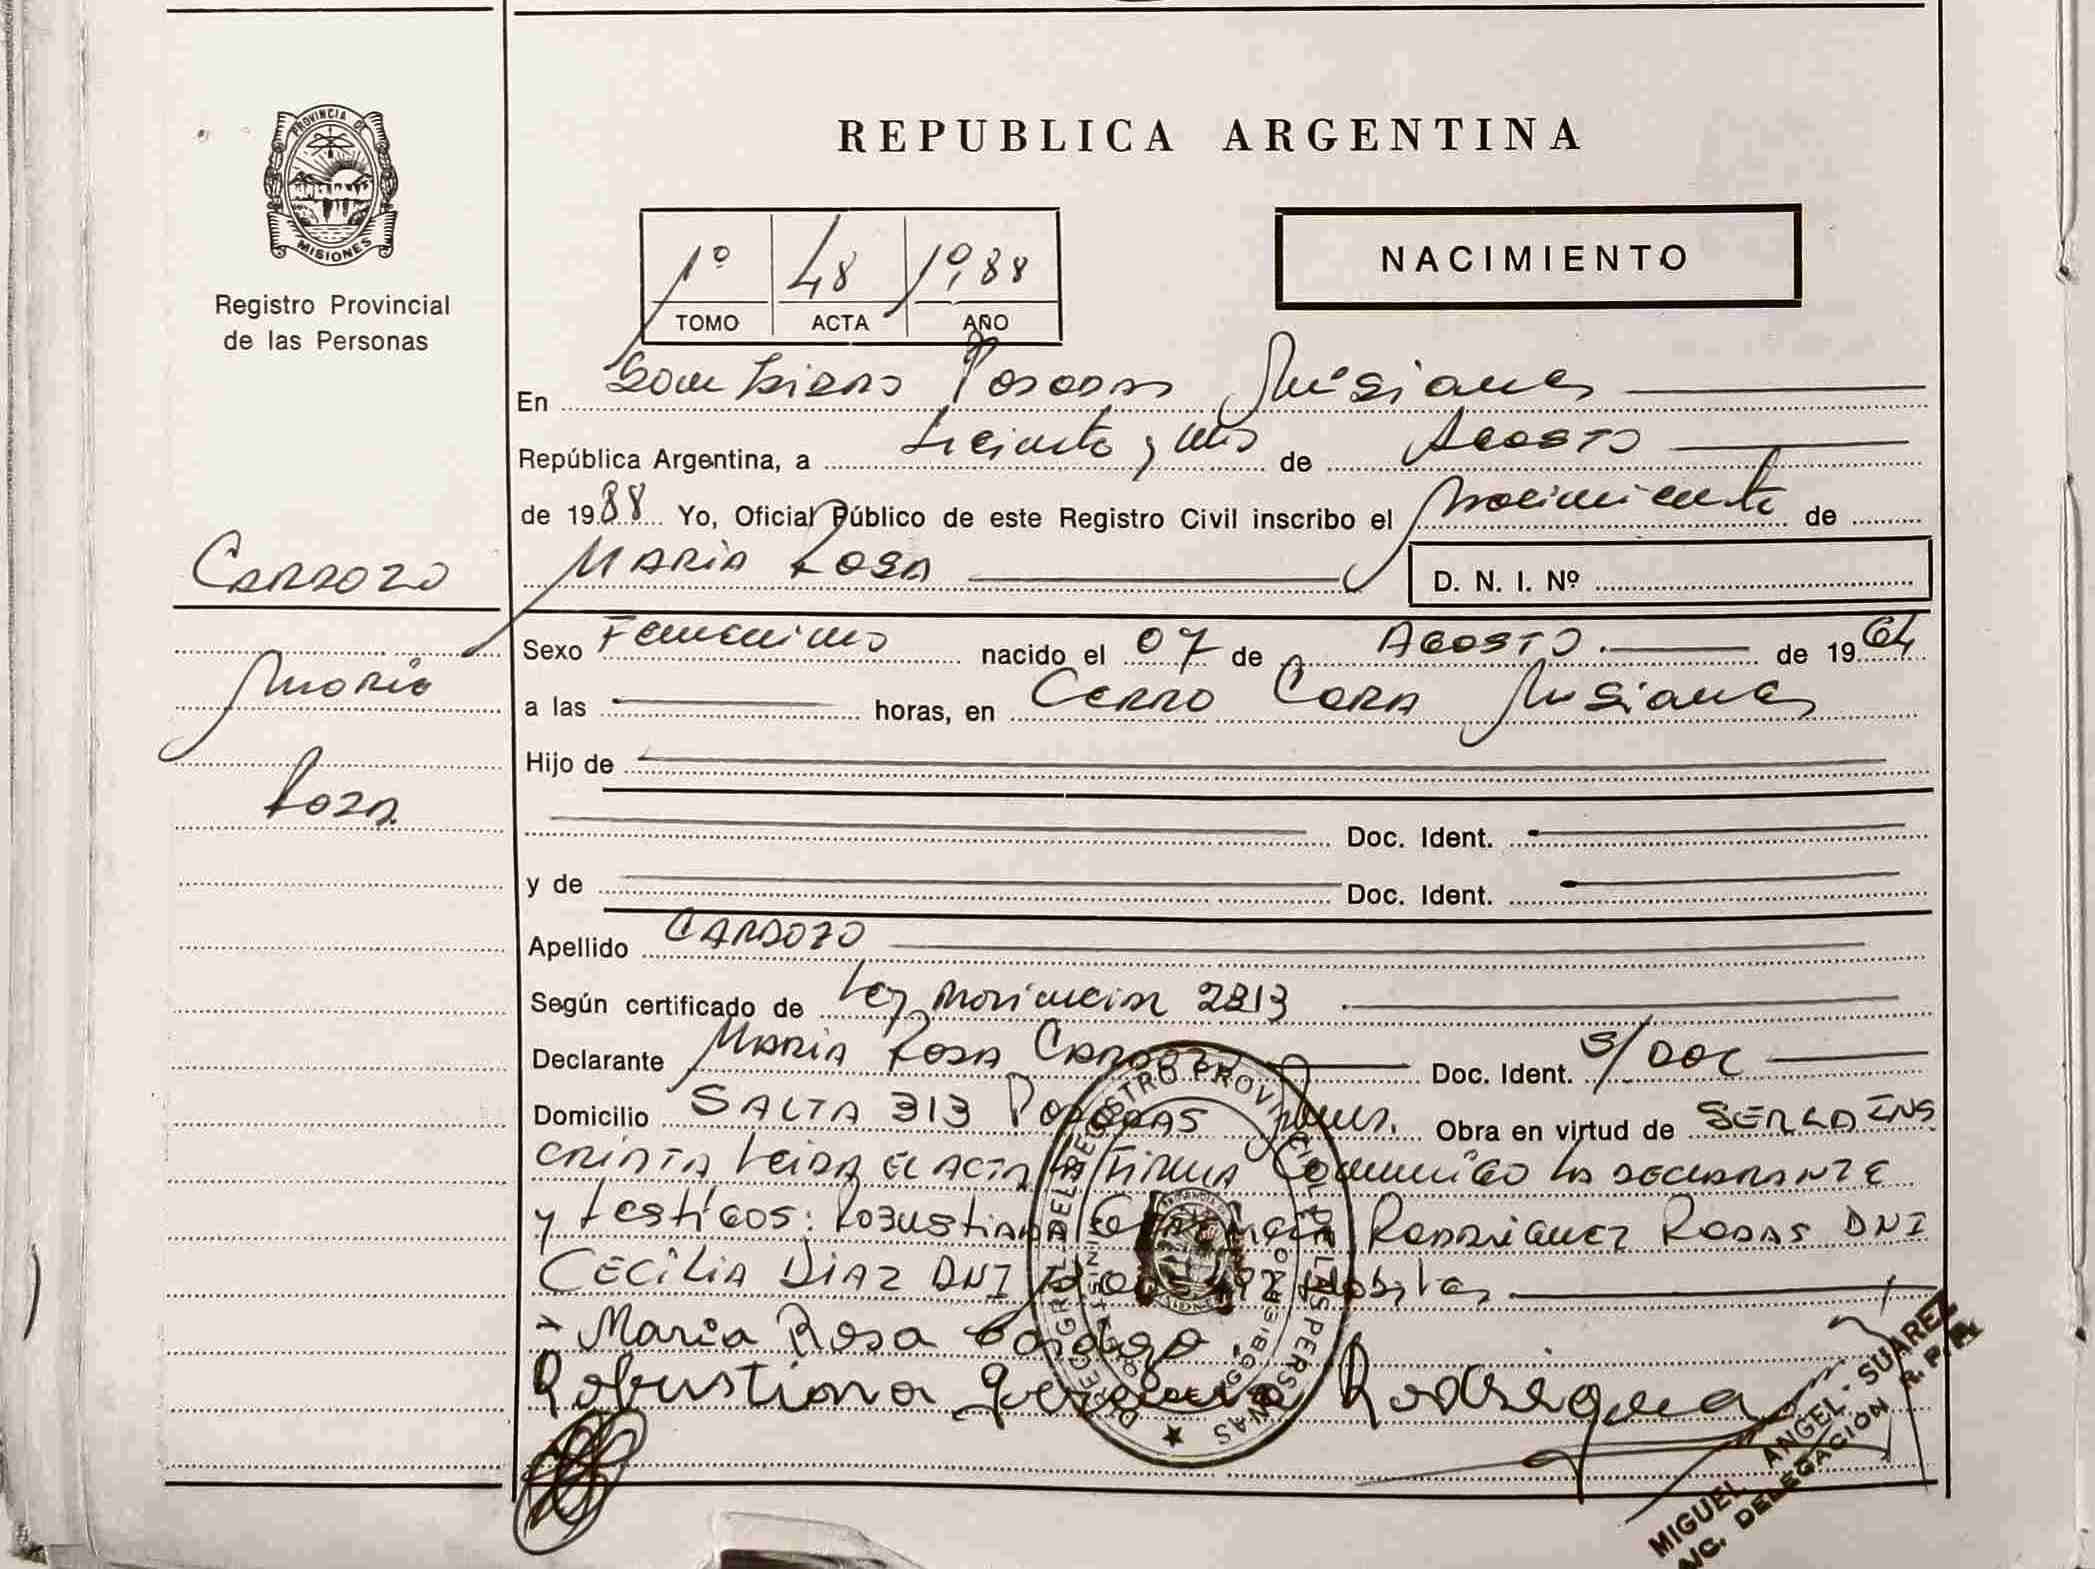 PROVINCIA DE
MISIONES
Registro Provincial
de las Personas
REPUBLICA ARGENTINA
NACIMIENTO
1º 48 1988
TOMO ACTA AÑO
En Posadas Misiones
República Argentina, a de Agosto
de 1988 Yo, Oficial Público de este Registro Civil inscribo el Nacimiento de
MARIA ROSA
D. N. I. Nº
CARDOZO
Maria
Rosa.
Sexo Femenino nacido el 07 de AGOSTO de 1964
a las horas, en CERRO CORA Misiones
Hijo de
Doc. Ident.
y de Doc. Ident.
Apellido CARDOZO
Según certificado de Ley Provincial 2813
Declarante MARIA ROSA CARDOZO Doc. Ident. S/DOC
Domicilio SALTA 313 POSADAS Mnes. Obra en virtud de SER LA INS
CRIPTA LEIDA EL ACTA LA FIRMA CONMIGO LA DECLARANTE
y testigos: ROBUSTIANA RODRIGUEZ RODAS DNI
CECILIA DIAZ DNI
Maria Rosa Cardozo
Robustiana
DIREC. GRAL. DEL REGISTRO PROVINCIAL DE LAS PERSONAS
MIGUEL ANGEL SUAREZ
A/C. DELEGACIÓN R. P. P.